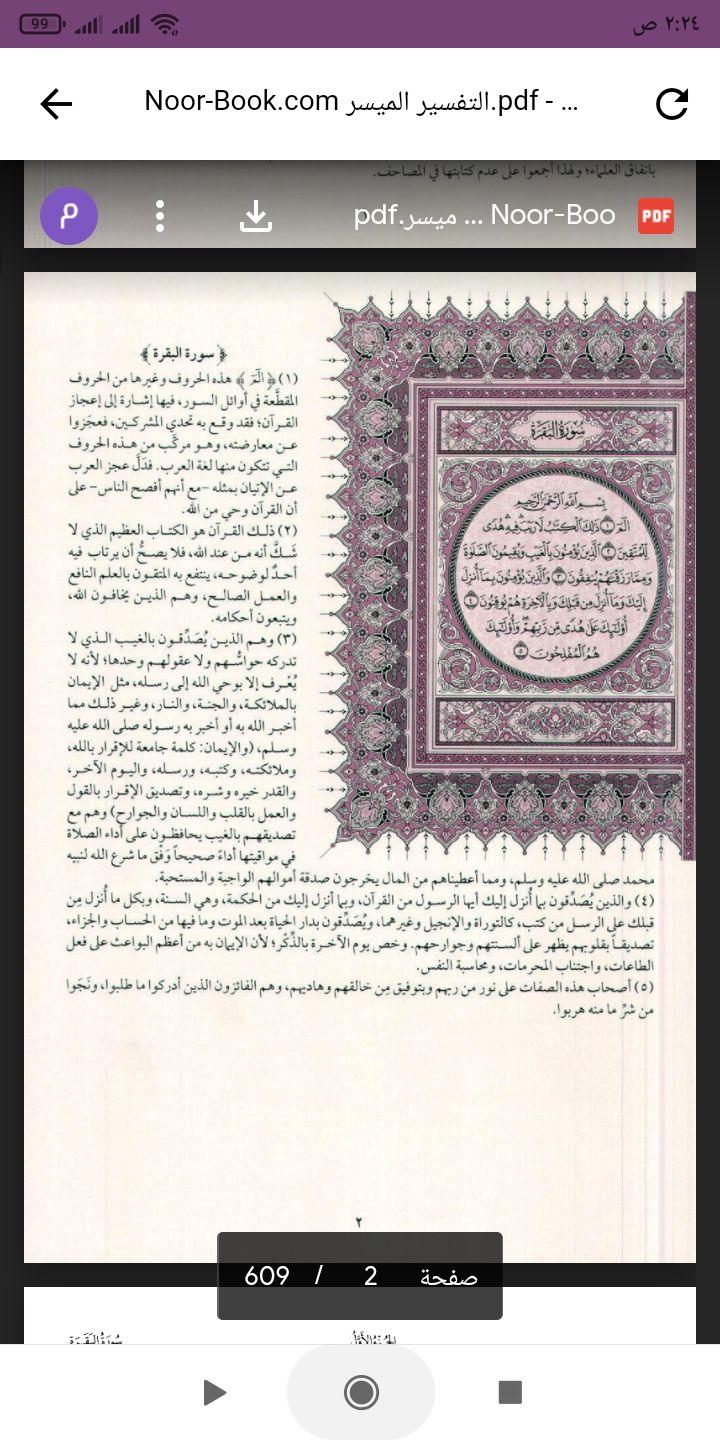 ٢:٢٤ ص
99
Noor-Book.com التفسير الميسر.pdf - ...
باتفاق العلماء؛ ولهذا أجمعوا على عدم كتابتها في المصاحف.
م
Noor-Boo ... ميسر.pdf
PDF
سُورَةُ البَقَرَةِ
بِسْمِ اللَّهِ الرَّحْمَٰنِ الرَّحِيمِ
الٓمٓ ١ ذَٰلِكَ ٱلْكِتَٰبُ لَا رَيْبَ ۛ فِيهِ ۛ هُدًى
لِّلْمُتَّقِينَ ٢ ٱلَّذِينَ يُؤْمِنُونَ بِٱلْغَيْبِ وَيُقِيمُونَ ٱلصَّلَوٰةَ
وَمِمَّا رَزَقْنَٰهُمْ يُنفِقُونَ ٣ وَٱلَّذِينَ يُؤْمِنُونَ بِمَآ أُنزِلَ
إِلَيْكَ وَمَآ أُنزِلَ مِن قَبْلِكَ وَبِٱلْأٓخِرَةِ هُمْ يُوقِنُونَ ٤
أُو۟لَٰٓئِكَ عَلَىٰ هُدًى مِّن رَّبِّهِمْ ۖ وَأُو۟لَٰٓئِكَ
هُمُ ٱلْمُفْلِحُونَ ٥
﴿ سورة البقرة ﴾
(١) ﴿ الٓمٓ ﴾ هذه الحروف وغيرها من الحروف
المقطَّعة في أوائل السور، فيها إشارة إلى إعجاز
القرآن؛ فقد وقع به تحدي المشركين، فعجَزوا
عن معارضته، وهو مركَّب من هذه الحروف
التي تتكون منها لغة العرب. فدَلَّ عجز العرب
عن الإتيان بمثله -مع أنهم أفصح الناس- على
أن القرآن وحي من الله.
(٢) ذلك القرآن هو الكتاب العظيم الذي لا
شَكَّ أنه من عند الله، فلا يصحُّ أن يرتاب فيه
أحدٌ لوضوحه، ينتفع به المتقون بالعلم النافع
والعمل الصالح، وهم الذين يخافون الله،
ويتبعون أحكامه.
(٣) وهم الذين يُصَدِّقون بالغيب الذي لا
تدركه حواسُّهم ولا عقولهم وحدها؛ لأنه لا
يُعْرف إلا بوحي الله إلى رسله، مثل الإيمان
بالملائكة، والجنة، والنار، وغير ذلك مما
أخبر الله به أو أخبر به رسوله صلى الله عليه
وسلم، (والإيمان: كلمة جامعة للإقرار بالله،
وملائكته، وكتبه، ورسله، واليوم الآخر،
والقدر خيره وشره، وتصديق الإقرار بالقول
والعمل بالقلب واللسان والجوارح) وهم مع
تصديقهم بالغيب يحافظون على أداء الصلاة
في مواقيتها أداءً صحيحاً وَفْق ما شرع الله لنبيه
محمد صلى الله عليه وسلم، ومما أعطيناهم من المال يخرجون صدقة أموالهم الواجبة والمستحبة.
(٤) والذين يُصَدِّقون بما أُنزل إليك أيها الرسول من القرآن، وبما أنزل إليك من الحكمة، وهي السنة، وبكل ما أُنزل مِن
قبلك على الرسل من كتب، كالتوراة والإنجيل وغيرهما، ويُصَدِّقون بدار الحياة بعد الموت وما فيها من الحساب والجزاء،
تصديقاً بقلوبهم يظهر على ألسنتهم وجوارحهم. وخص يوم الآخرة بالذِّكْر؛ لأن الإيمان به من أعظم البواعث على فعل
الطاعات، واجتناب المحرمات، ومحاسبة النفس.
(٥) أصحاب هذه الصفات على نور من ربهم وبتوفيق مِن خالقهم وهاديهم، وهم الفائزون الذين أدركوا ما طلبوا، ونَجَوا
من شرِّ ما منه هربوا.
٢
صفحة 2 / 609
الجزء الأول
سورة البقرة